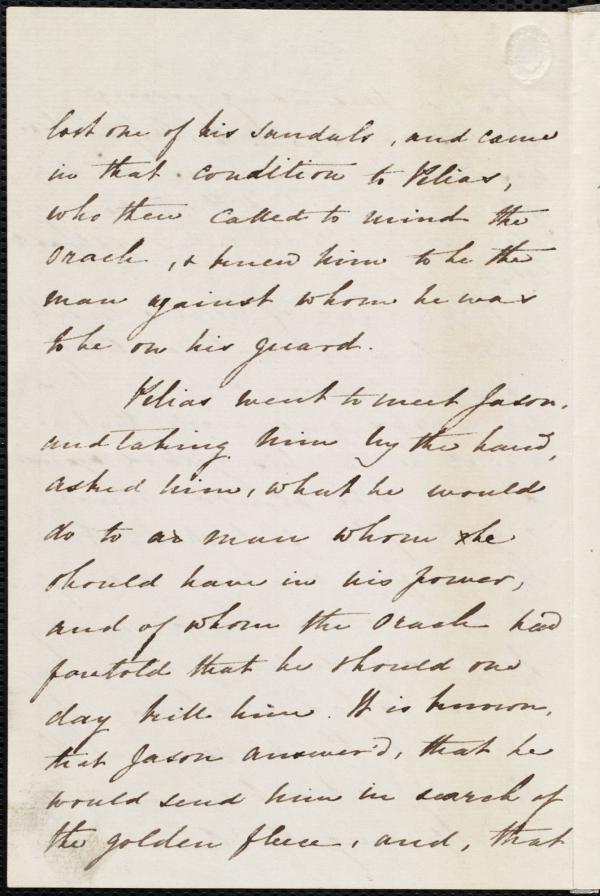 lost one of his sandals, and came
in that condition to Pelias,
who then called to mind the
oracle, & knew him to be the
man against whom he was
to be on his guard.
Pelias went to meet Jason,
and taking him by the hand,
asked him, what he would
do to a man whom he
should have in his power,
and of whom the oracle had
foretold that he should one
day kill him. It is known,
that Jason answer'd, that he
would send him in search of
the golden fleece, and, that